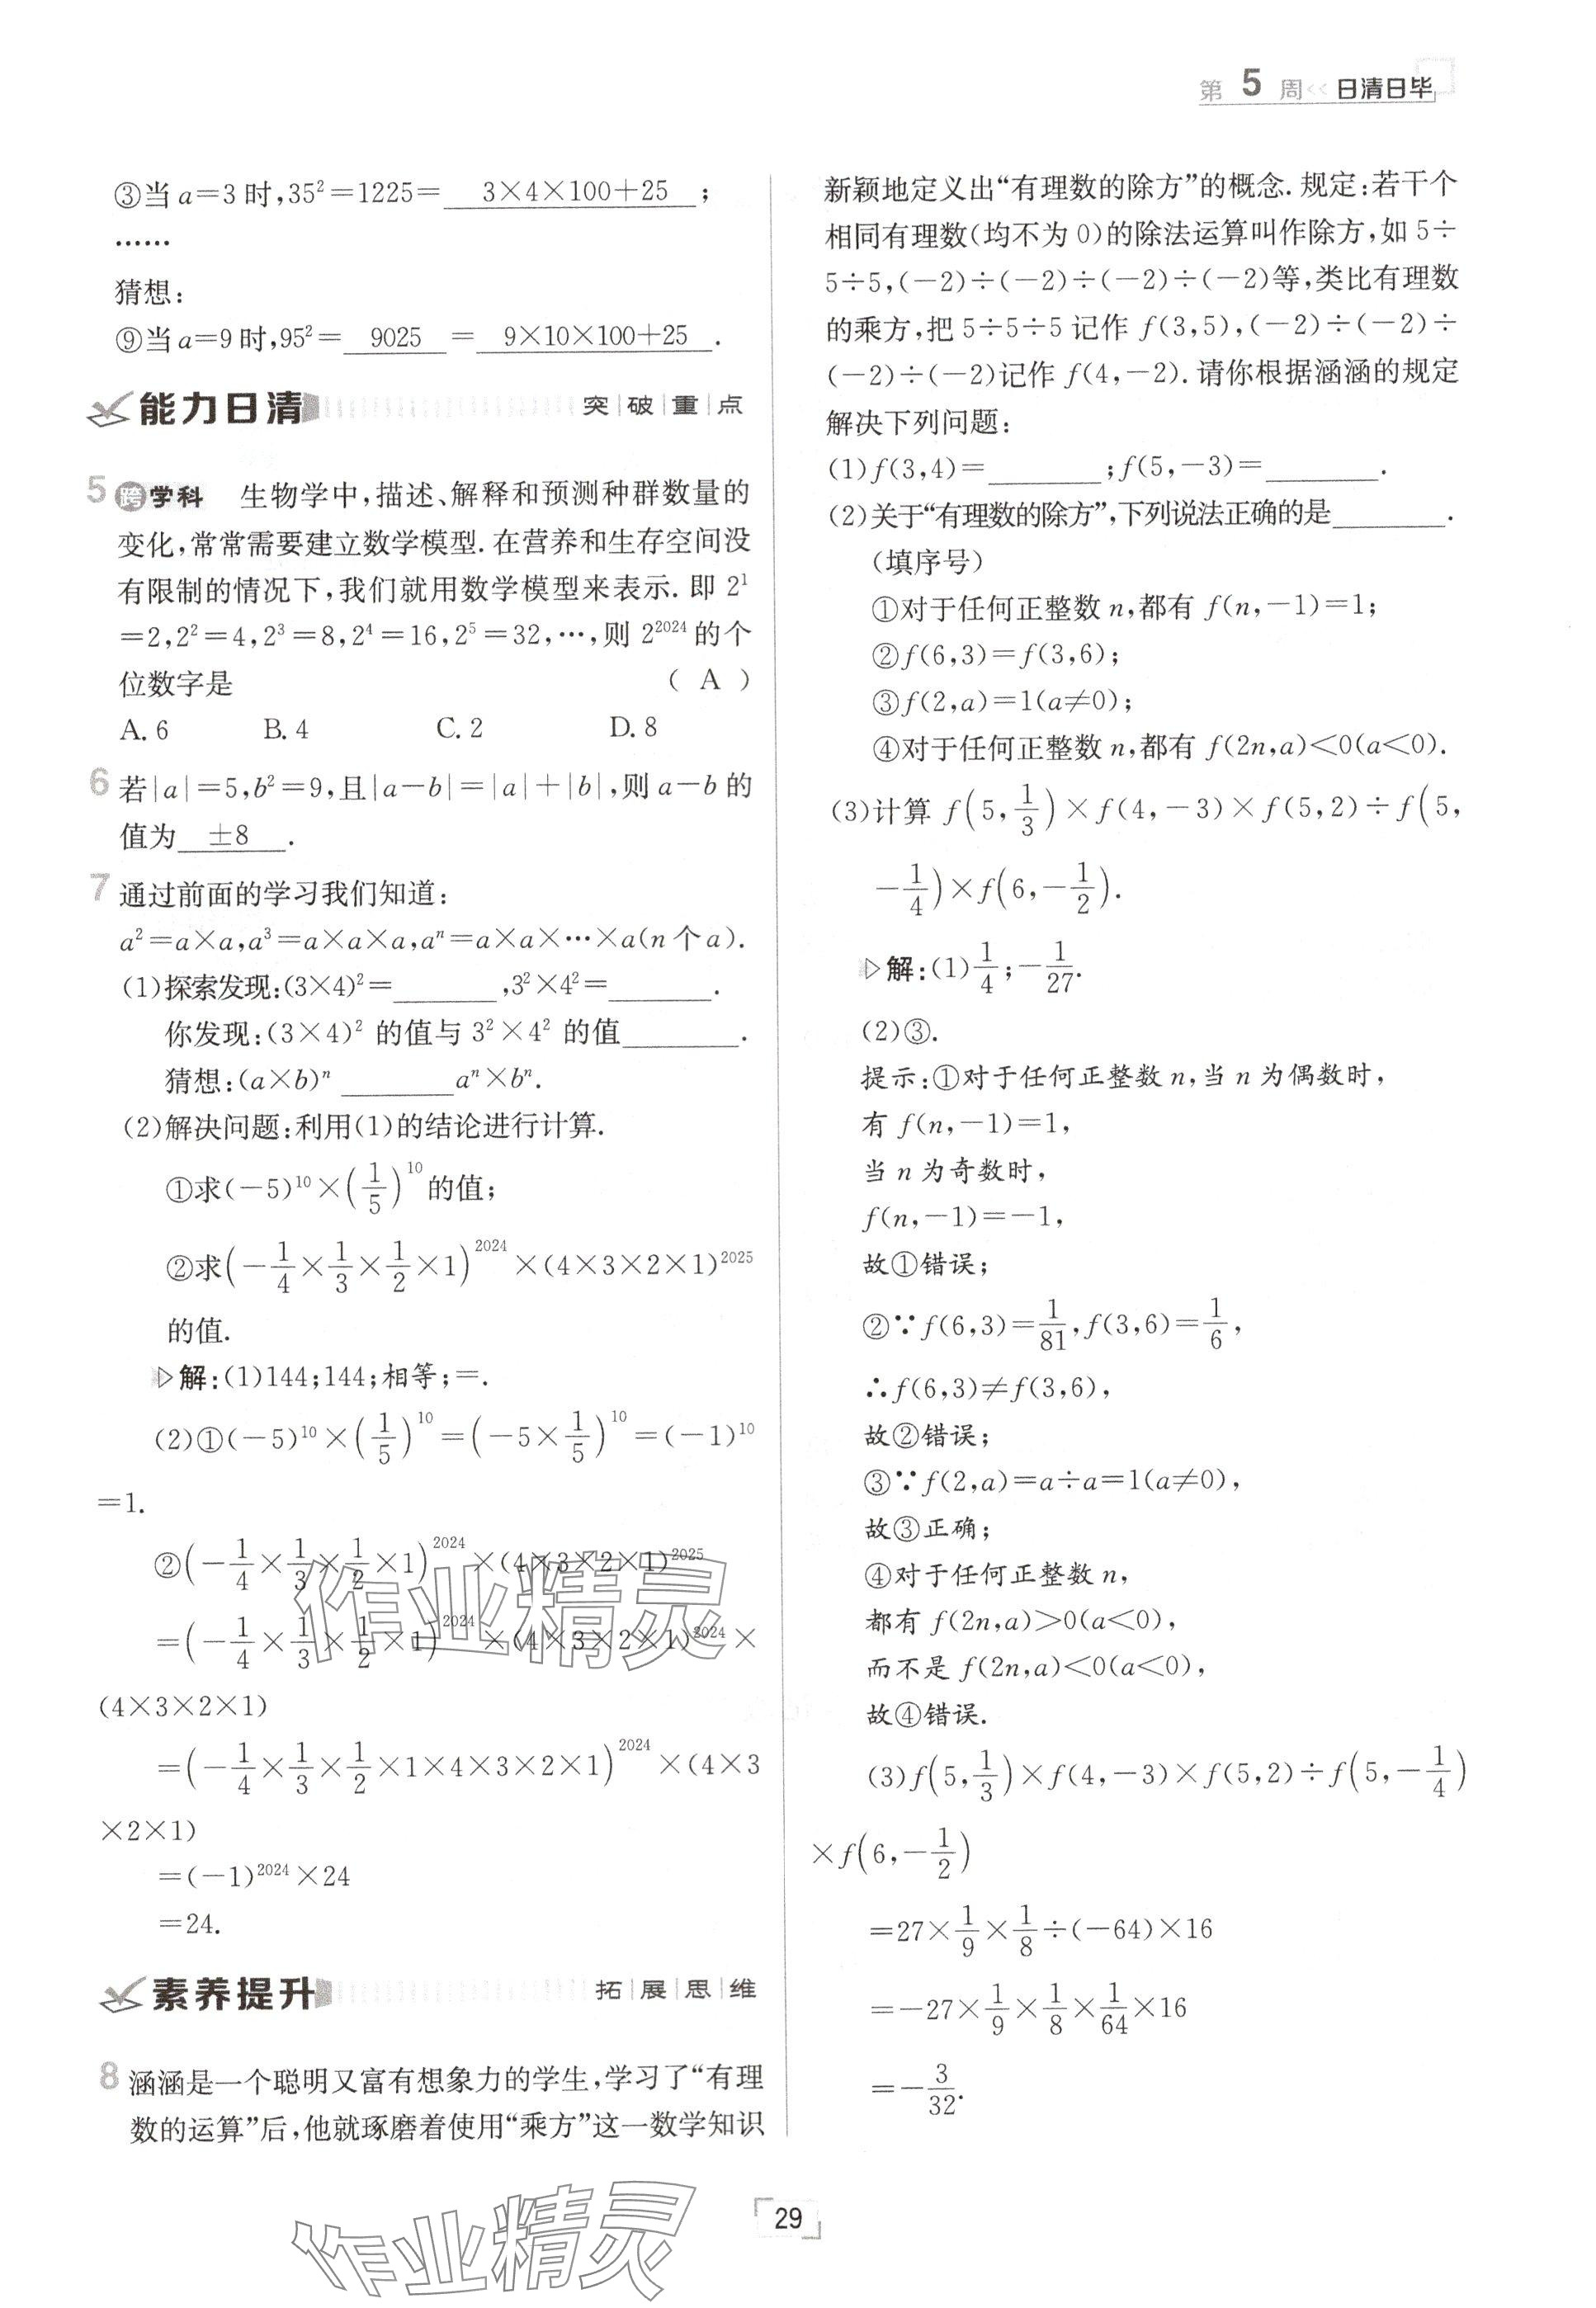 第 5 周 << 日清日毕
③当 a=3 时,35²=1225= 3×4×100+25 ;
……
猜想:
⑨当 a=9 时,95²= 9025 = 9×10×100+25 .
能力日清 突|破|重|点
5 跨学科 生物学中,描述、解释和预测种群数量的
变化,常常需要建立数学模型.在营养和生存空间没
有限制的情况下,我们就用数学模型来表示.即 2¹
=2,2²=4,2³=8,2⁴=16,2⁵=32,…,则 2²⁰²⁴ 的个
位数字是 ( A )
A. 6 B. 4 C. 2 D. 8
6 若|a|=5,b²=9,且|a-b|=|a|+|b|,则 a-b 的
值为 ±8 .
7 通过前面的学习我们知道:
a²=a×a,a³=a×a×a,aⁿ=a×a×…×a(n 个 a).
(1)探索发现:(3×4)²=________,3²×4²=________.
你发现:(3×4)² 的值与 3²×4² 的值________.
猜想:(a×b)ⁿ ________aⁿ×bⁿ.
(2)解决问题:利用(1)的结论进行计算.
①求(-5)¹⁰×(1/5)¹⁰的值;
②求(-1/4×1/3×1/2×1)²⁰²⁴×(4×3×2×1)²⁰²⁵
的值.
▷解:(1)144;144;相等;=.
(2)①(-5)¹⁰×(1/5)¹⁰=(-5×1/5)¹⁰=(-1)¹⁰
=1.
②(-1/4×1/3×1/2×1)²⁰²⁴×(4×3×2×1)²⁰²⁵
=(-1/4×1/3×1/2×1)²⁰²⁴×(4×3×2×1)²⁰²⁴×
(4×3×2×1)
=(-1/4×1/3×1/2×1×4×3×2×1)²⁰²⁴×(4×3
×2×1)
=(-1)²⁰²⁴×24
=24.
素养提升 拓|展|思|维
8 涵涵是一个聪明又富有想象力的学生,学习了“有理
数的运算”后,他就琢磨着使用“乘方”这一数学知识
新颖地定义出“有理数的除方”的概念.规定:若干个
相同有理数(均不为 0)的除法运算叫作除方,如 5÷
5÷5,(-2)÷(-2)÷(-2)÷(-2)等,类比有理数
的乘方,把 5÷5÷5 记作 f(3,5),(-2)÷(-2)÷
(-2)÷(-2)记作 f(4,-2).请你根据涵涵的规定
解决下列问题:
(1)f(3,4)=________;f(5,-3)=________.
(2)关于“有理数的除方”,下列说法正确的是________.
(填序号)
①对于任何正整数 n,都有 f(n,-1)=1;
②f(6,3)=f(3,6);
③f(2,a)=1(a≠0);
④对于任何正整数 n,都有 f(2n,a)<0(a<0).
(3)计算 f(5,1/3)×f(4,-3)×f(5,2)÷f(5,
-1/4)×f(6,-1/2).
▷解:(1)1/4;-1/27.
(2)③.
提示:①对于任何正整数 n,当 n 为偶数时,
有 f(n,-1)=1,
当 n 为奇数时,
f(n,-1)=-1,
故①错误;
②∵f(6,3)=1/81,f(3,6)=1/6,
∴f(6,3)≠f(3,6),
故②错误;
③∵f(2,a)=a÷a=1(a≠0),
故③正确;
④对于任何正整数 n,
都有 f(2n,a)>0(a<0),
而不是 f(2n,a)<0(a<0),
故④错误.
(3)f(5,1/3)×f(4,-3)×f(5,2)÷f(5,-1/4)
×f(6,-1/2)
=27×1/9×1/8÷(-64)×16
=-27×1/9×1/8×1/64×16
=-3/32.
作业精灵
作业精灵
29